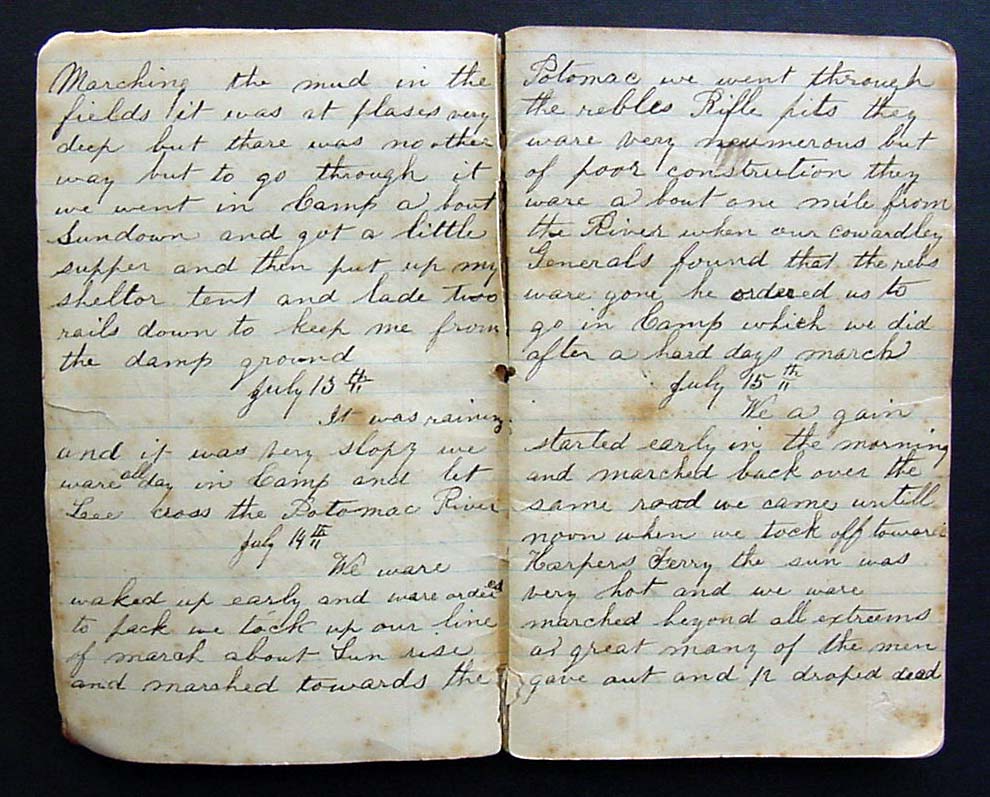 Marching the mud in the
fields it was at plases very
deep but thare was no other
way but to go through it
we went in Camp a bout
Sundown and got a little
supper and then put up my
sheltor tent and lade two
rails down to keep me from
the damp ground
July 13th
It was raining
and it was very slopy we
ware all day in Camp and let
Lee cross the Potomac River
July 14th
We ware
waked up early and ware ordered
to pack we tock up our line
of march about Sun rise
and marshed towards the
Potomac we went through
the rebles Rifle pits they
ware very neumerous but
of poor construction they
ware a bout one mile from
the River when our cowardley
Generals found that the rebs
ware gone he ordered us to
go in Camp which we did
after a hard days march
July 15th
We a gain
started early in the morning
and marched back over the
same road we came untill
noon when we tock off towards
Harpers Ferry the sun was
very hot and we ware
marched beyond all extreems
a great many of the men
gave out and 12 droped dead